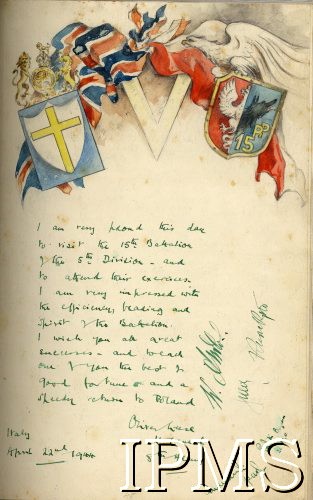 V
15
I am very proud this day
to visit the 15th Battalion
of the 5th Division - and
to attend their exercises.
I am very impressed with
the efficiency, bearing and
spirit of the Battalion.
I wish you all great
successes - and to each
one of you the best of
good fortune - and a
speedy return to Poland
Oliver Leese
Italy
April 22nd 1944
8th
IPMS